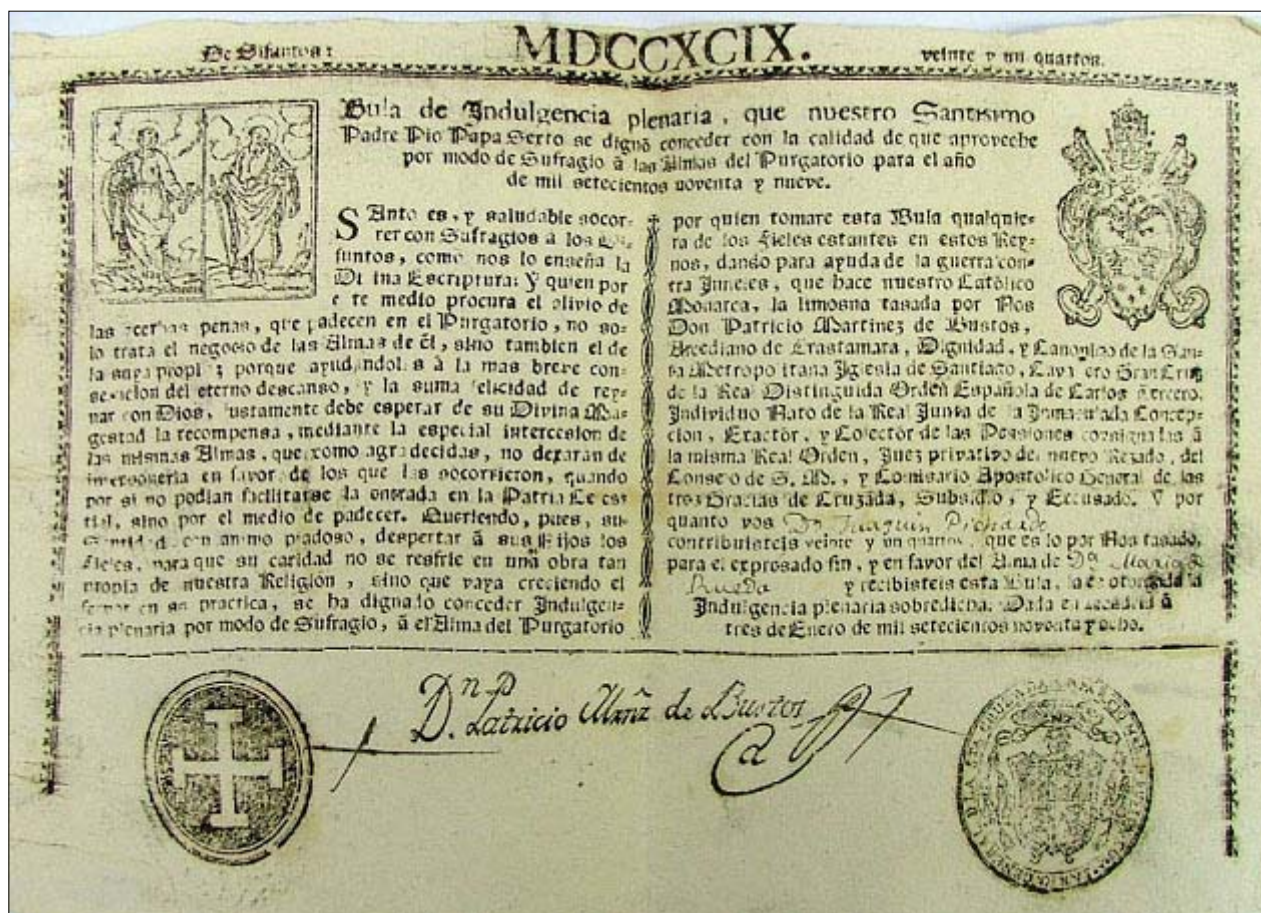 De Difuntos:
MDCCXCIX.
veinte y un quartos.
Bula de Indulgencia plenaria, que nuestro Santisimo
Padre Pio Papa Sexto se dignó conceder con la calidad de que aproveche
por modo de Sufragio à las Almas del Purgatorio para el año
de mil setecientos noventa y nueve.
SAnto es, y saludable socor-
rer con Sufragios à los Di-
funtos, como nos lo enseña la
Divina Escriptura: Y quien por
este medio procura el alivio de
las acerbas penas, que padecen en el Purgatorio, no so-
lo trata el negocio de las Almas de él, sino tambien el de
la suya propia; porque ayudandolas à la mas breve con-
secucion del eterno descanso, y la suma felicidad de rey-
nar con Dios, justamente debe esperar de su Divina Ma-
gestad la recompensa, mediante la especial intercesion de
las mismas Almas, que como agradecidas, no dexarán de
interponerla en favor de los que las socorrieron, quando
por si no podian facilitarse la entrada en la Patria Celes-
tial, sino por el medio de padecer. Queriendo, pues, su
Santidad, con animo piadoso, despertar à sus Hijos los
Fieles, para que su caridad no se resfrie en una obra tan
propia de nuestra Religion, sino que vaya creciendo el
fervor en su practica, se ha dignado conceder Indulgen-
cia plenaria por modo de Sufragio, à el Alma del Purgatorio
por quien tomare esta Bula qualquie-
ra de los Fieles estantes en estos Rey-
nos, dando para ayuda de la guerra con-
tra Infieles, que hace nuestro Católico
Monarca, la limosna tasada por Nos
Don Patricio Martinez de Bustos,
Arcediano de Trastamara, Dignidad, y Canonigo de la San-
ta Metropolitana Iglesia de Santiago, Cavallero Gran Cruz
de la Real Distinguida Orden Española de Carlos Tercero,
Individuo Nato de la Real Junta de la Inmaculada Concep-
cion, Exactór, y Colector de las Pensiones consignadas à
la misma Real Orden, Juez privativo del nuevo Rezado, del
Consejo de S. M., y Comisario Apostolico General de las
tres Gracias de Cruzada, Subsidio, y Excusado. Y por
quanto vos Dn Juaquin
contribuisteis veinte y un quartos, que es lo por Nos tasado,
para el expresado fin, y en favor del Alma de Dª Maria
Rueda y recibisteis esta Bula, la es otorgada la
Indulgencia plenaria sobredicha. Dada en Madrid à
tres de Enero de mil setecientos noventa y ocho.
Dn. Patricio Mrñz de Bustos